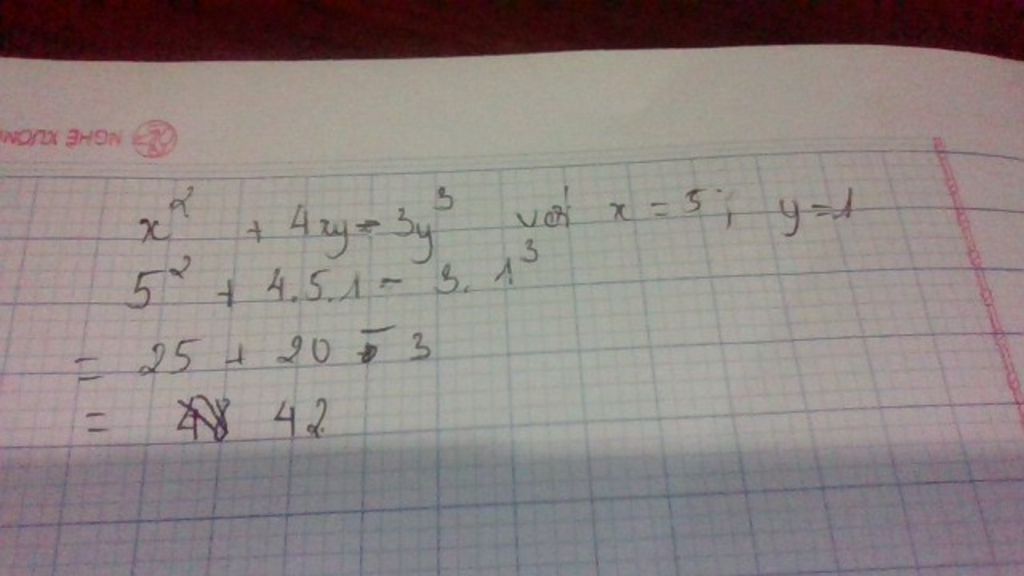 NGHE XUON
x² + 4xy - 3y³ với x = 5; y = 1
5² + 4.5.1 - 3.1³
= 25 + 20 - 3
= 42